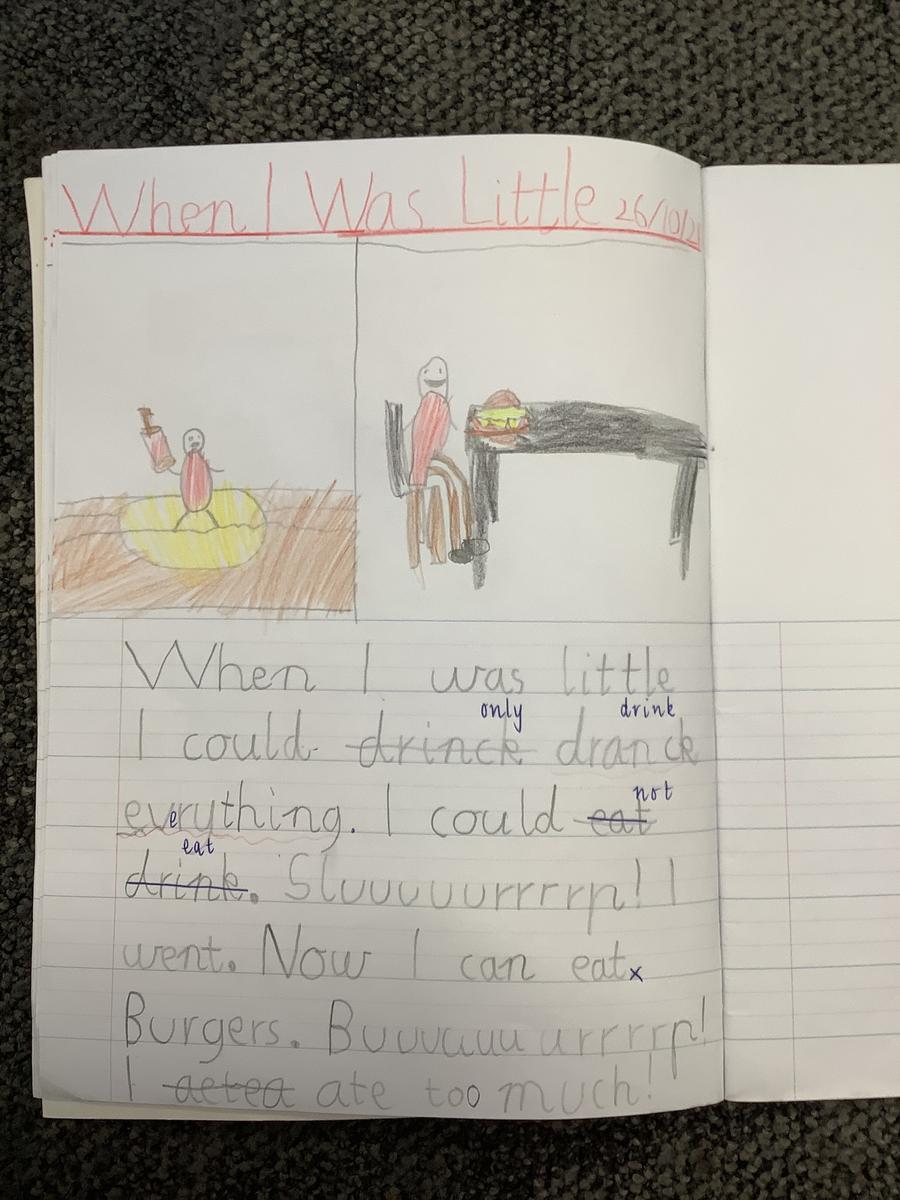 When I Was Little 26/10/2
When I was little
only drink
I could drinck dranck
not
everything. I could eat
eat
drink. Sluuuuuurrrrp! I
went. Now I can eat x
Burgers. Buuuuuuurrrrp!
I aetea ate too much!